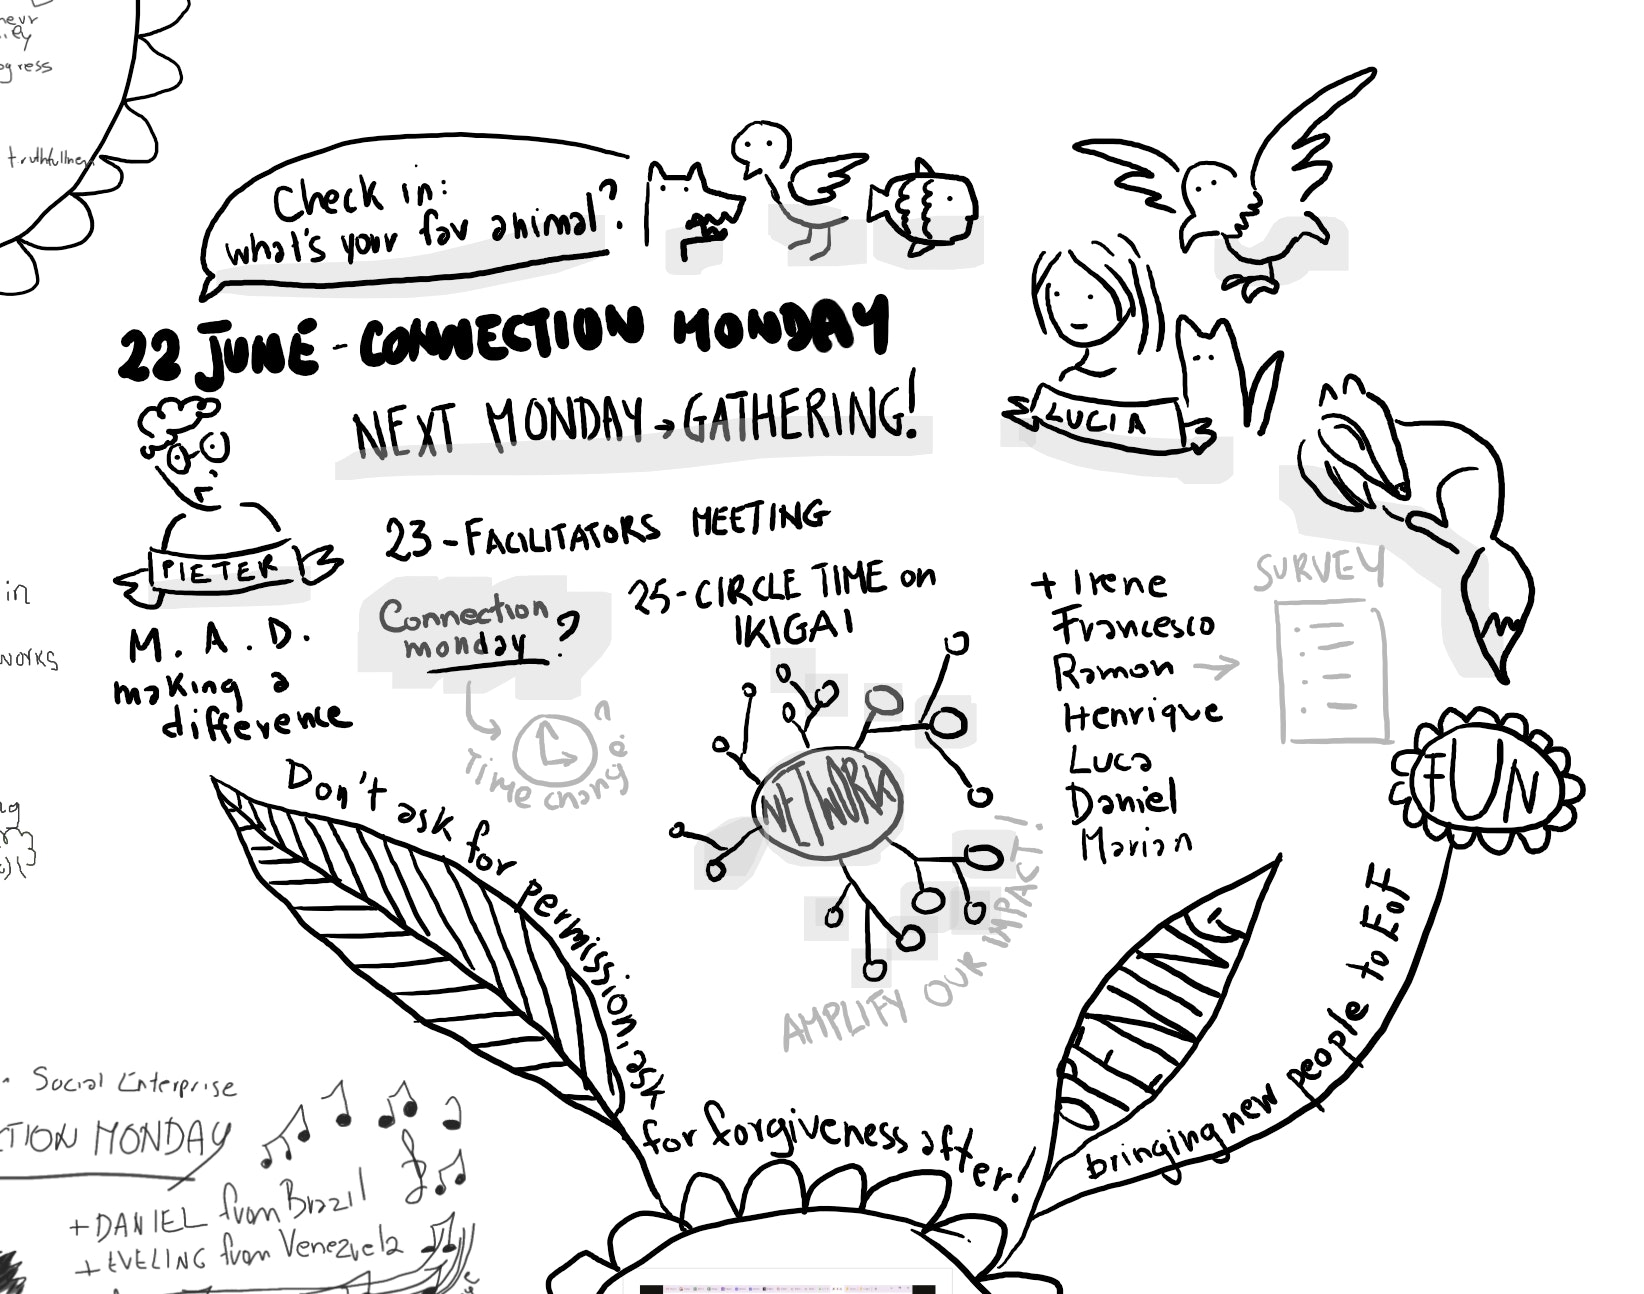 ogress
truthfullness
Check in:
what's your fav animal?
22 JUNE - CONNECTION MONDAY
NEXT MONDAY → GATHERING!
LUCIA
PIETER
M. A. D.
making a
difference
23 - FACILITATORS MEETING
Connection
monday?
Time change?
25 - CIRCLE TIME on
IKIGAI
NETWORK
AMPLIFY OUR IMPACT!
+ Irene
Francesco
Ramon →
Henrique
Luca
Daniel
Marian
SURVEY
FUN
OPENING
bringing new people to EoF
Don't ask for permission, ask
for forgiveness after!
in
works
Social Enterprise
TION MONDAY
+ DANIEL from Brazil
+ EVELING from Venezuela